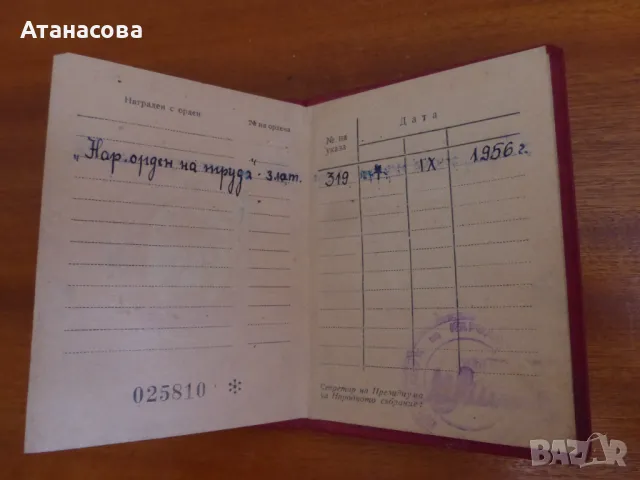 Атанасова
Награден с орден
№ на ордена
„Нар. орден на труда - злат. "
025810 *
№ на указа
Дата
319
IX
1956 г.
Секретар на Президиума
на Народното събрание:
BAZAR